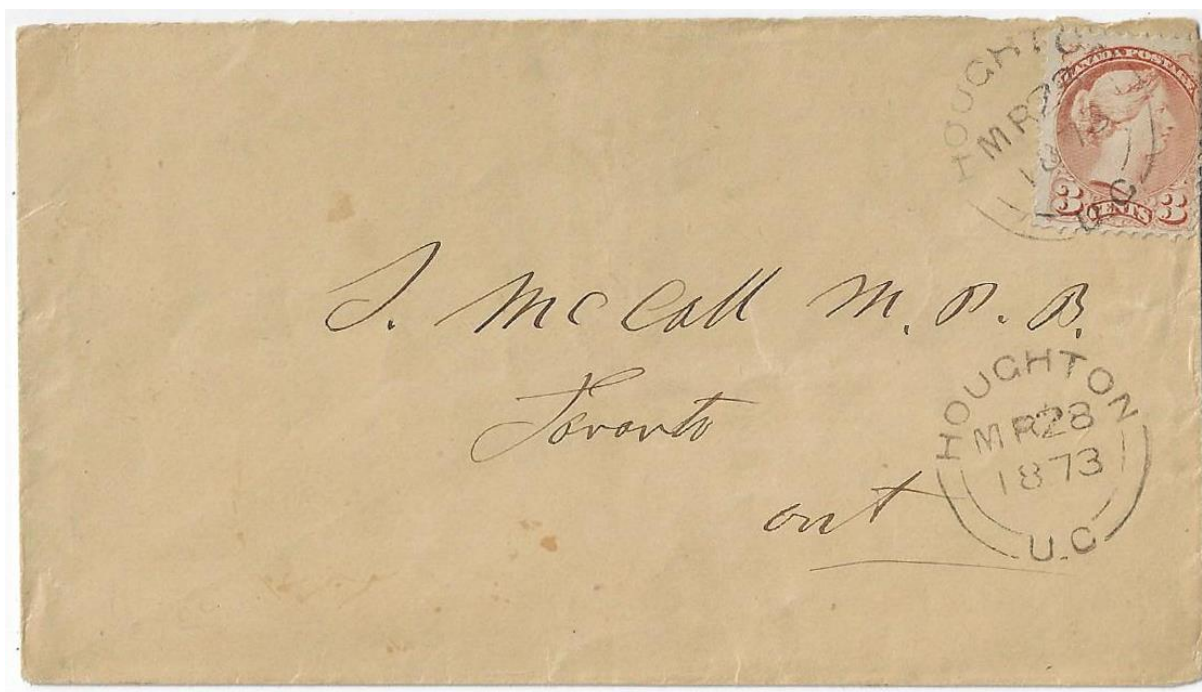 HOUGHTON
MR 28
1873
U.C
CANADA POSTAGE
3 CENTS 3
S. McCall M. P. P.
Toronto
ont
HOUGHTON
MR 28
1873
U.C